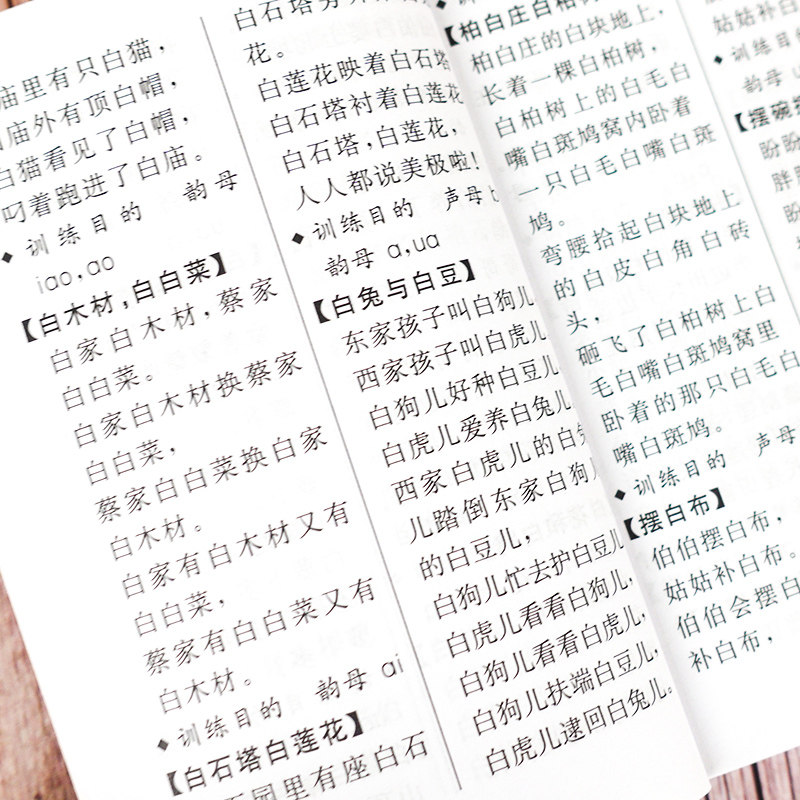 庙里有只白猫，
庙外有顶白帽，
白猫看见了白帽，
叼着跑进了白庙。
◆训练目的 韵母
iao,ao
【白木材,白白菜】
白家白木材，蔡家
白白菜。
白家白木材换蔡家
白白菜，
蔡家白白菜换白家
白木材。
白家有白木材又有
白白菜，
蔡家有白白菜又有
白木材。
◆训练目的 韵母 ai
【白石塔白莲花】
园里有座白石
花。
白莲花映着白石塔
白石塔衬着白莲花
白石塔，白莲花，
人人都说美极啦！
◆训练目的 声母
韵母 a,ua
【白兔与白豆】
东家孩子叫白狗儿
西家孩子叫白虎儿
白狗儿好种白豆儿
白虎儿爱养白兔儿
西家白虎儿的白
儿踏倒东家白狗
的白豆儿，
白狗儿忙去护白豆儿
白虎儿看看白狗儿，
白狗儿看看白虎儿，
白狗儿扶端白豆儿，
白虎儿逮回白兔儿。
【柏白庄白柏
柏白庄的白块地上，
长着一棵白柏树，
白柏树上的白毛白
嘴白斑鸠窝内卧着
一只白毛白嘴白斑
鸠。
弯腰拾起白块地上
的白皮白角白砖
头，
砸飞了白柏树上白
毛白嘴白斑鸠窝里
卧着的那只白毛白
嘴白斑鸠。
◆训练目的 声母
【摆白布】
伯伯摆白布，
姑姑补白布。
伯伯会摆白
补白布，
姑姑补白
◆训练目的
韵母
【摆碗
盼
胖
盼